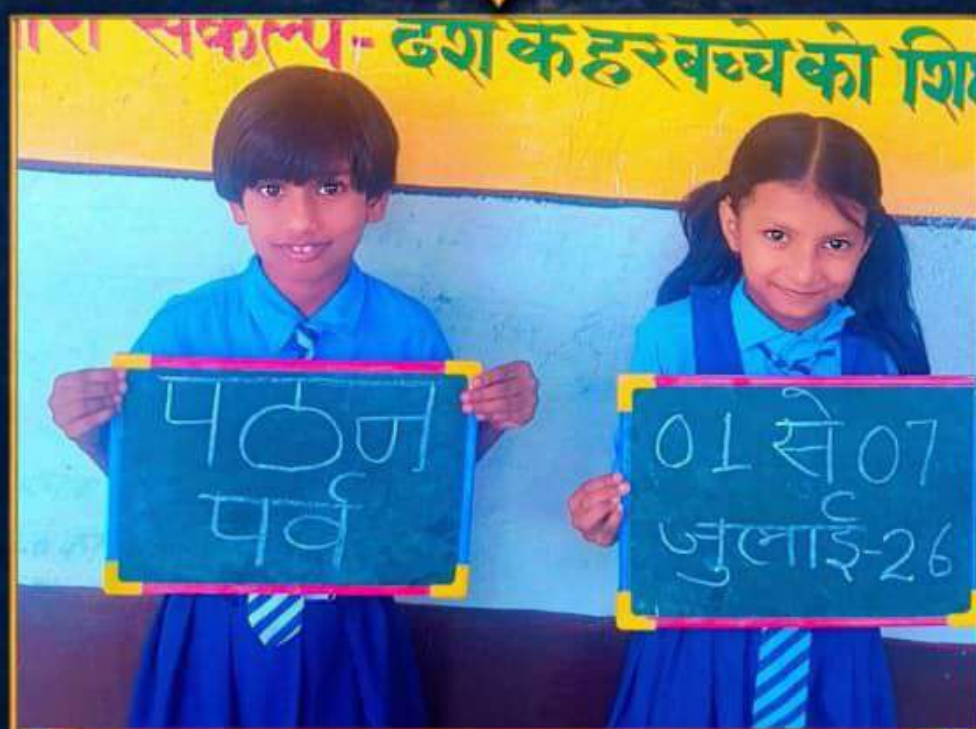 संकल्प- देश के हर बच्चे को
पठन
पर्व
01 से 07
जुलाई-26